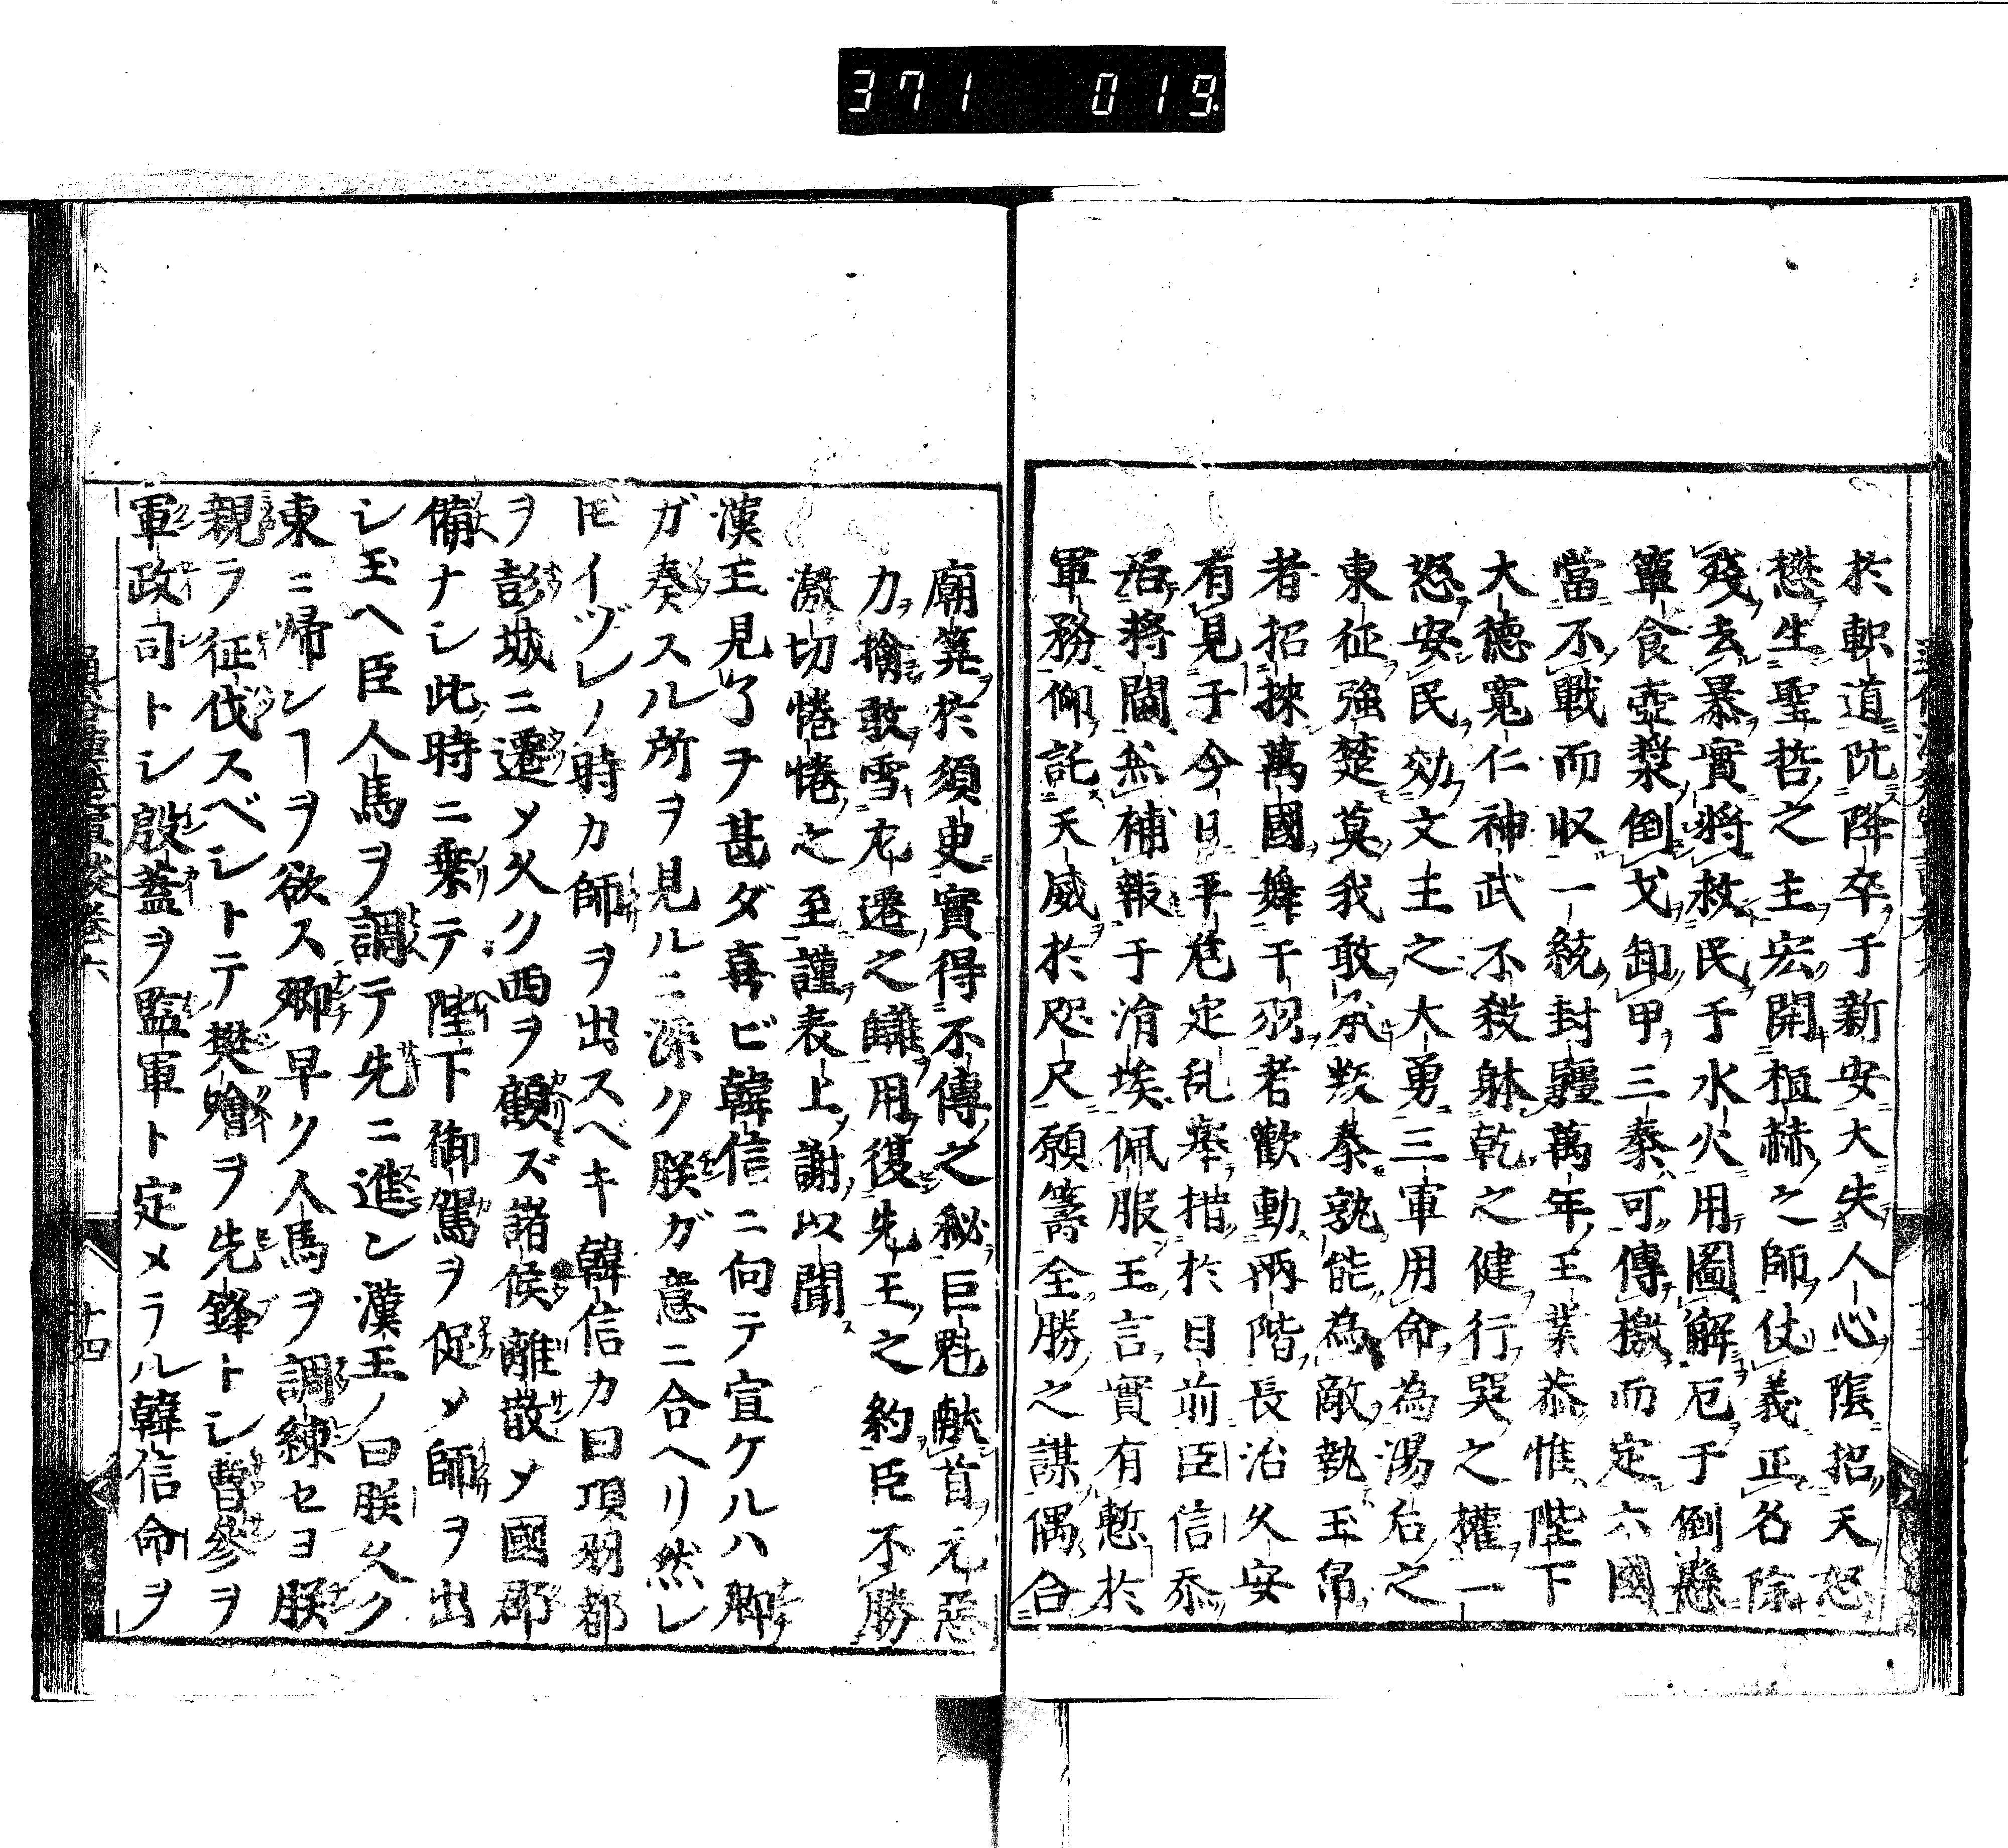 371 019
於軹道阬降卒于新安大失人心隂招天怒
懋生聖哲之主宏開桓赫之師仗義正名除
殘去暴實將救民于水火用圖解厄于倒懸
簞食壺漿倒戈卸甲三秦可傳檄而定六國
當不戰而収一統封疆萬年王業恭惟陛下
大德寬仁神武不殺躰乾之健行巽之權一
怒安民効文王之大勇三軍用命為湯后之
東征強楚莫我敢承叛秦孰能為敵執玉帛
者招徠萬國舞干羽者歡動兩階長治久安
有見于今日平危定乱舉措於目前臣信忝
居將閫無補報于涓埃佩服王言實有慙於
軍務仰託天威於咫尺願籌全勝之謀偶合
廟筭於須史實得不傳之秘巨魁献首元惡
力擒敢雪左遷之讎用復先王之約臣不勝
激切惓惓之至謹表上謝以聞
漢王見了ヲ甚ダ喜ビ韓信ニ向テ宣ケルハ卿
ガ奏スル所ヲ見ルニ深ク朕ガ意ニ合ヘリ然レ
𪜈イヅレノ時カ師ヲ出スベキ韓信カ曰項羽都
ヲ彭城ニ遷メ久ク西ヲ顧ズ諸侯離散メ國郡
備ナシ此時ニ乗テ陛下御駕ヲ促メ師ヲ出
シ玉ヘ臣人馬ヲ調テ先ニ進ン漢王ノ曰朕久ク
東ニ帰ンヿヲ欲ス卿早ク人馬ヲ調練セヨ朕
親ラ征伐スベシトテ樊噲ヲ先鋒トシ曹參ヲ
軍政司トシ殷蓋ヲ監軍ト定メラル韓信命ヲ
十四